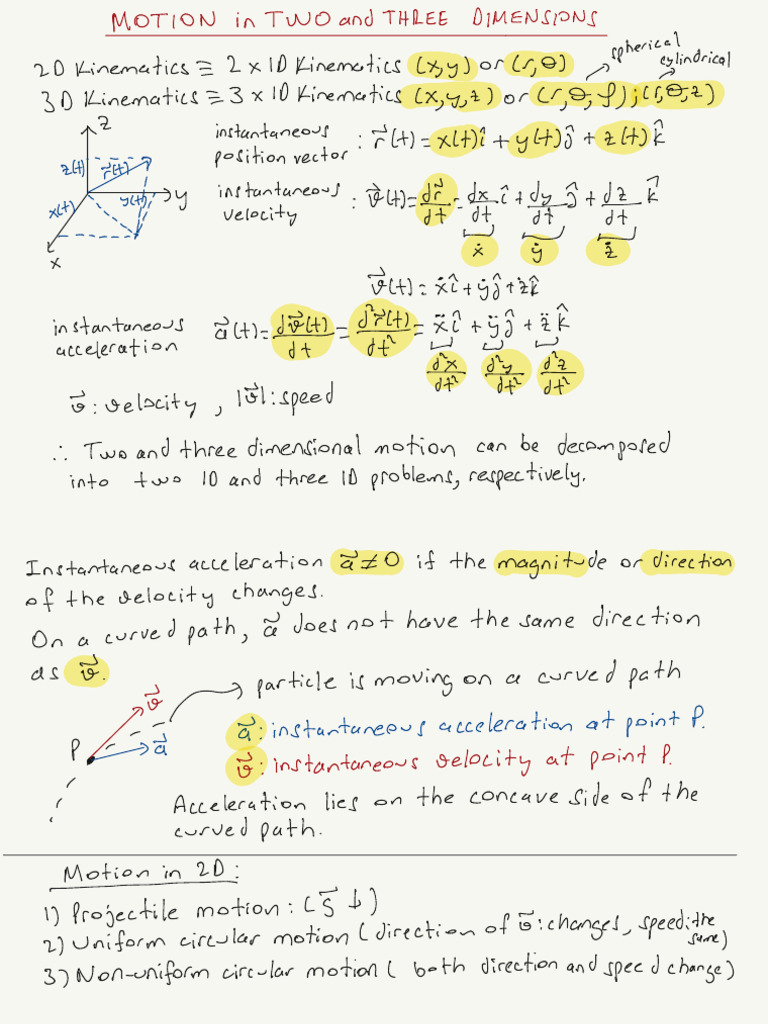 MOTION in TWO and THREE DIMENSIONS
2D Kinematics ≡ 2 x 1D Kinematics (x,y) or (r,θ)
spherical
cylindrical
3D Kinematics ≡ 3 x 1D Kinematics (x,y,z) or (r,θ,φ);(r,θ,z)
z
z(t)
r⃗(t)
x(t)
y(t)
y
x
instantaneous position vector : r⃗(t) = x(t)î + y(t)ĵ + z(t)k̂
instantaneous velocity : v⃗(t) = dr⃗/dt = dx/dt î + dy/dt ĵ + dz/dt k̂
ẋ ẏ ż
v⃗(t) = ẋî + ẏĵ + żk̂
instantaneous acceleration a⃗(t) = dv⃗(t)/dt = d²r⃗(t)/dt² = ẍî + ÿĵ + z̈k̂
d²x/dt² d²y/dt² d²z/dt²
v⃗ : velocity , |v⃗| : speed
∴ Two and three dimensional motion can be decomposed
into two 1D and three 1D problems, respectively.
Instantaneous acceleration a⃗ ≠ 0 if the magnitude or direction
of the velocity changes.
On a curved path, a⃗ does not have the same direction
as v⃗.
particle is moving on a curved path
v⃗
P
a⃗
a⃗ : instantaneous acceleration at point P.
v⃗ : instantaneous velocity at point P.
Acceleration lies on the concave side of the
curved path.
Motion in 2D :
1) Projectile motion : (g⃗ ↓)
2) Uniform circular motion ( direction of v⃗ : changes, speed: the same)
3) Non-uniform circular motion ( both direction and speed change)